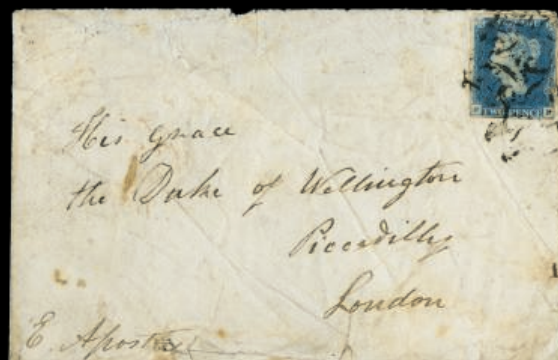 TWO PENCE
His Grace
the Duke of Wellington
Piccadilly
London
E